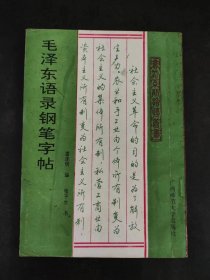 毛泽东语录钢笔字帖
社会主义革命的目的是为了解放
生产力。农业和手工业由个体的所有制变为
社会主义的集体所有制，私营工商业由
资本主义所有制变为社会主义所有制，
编
书
广西师范大学出版社